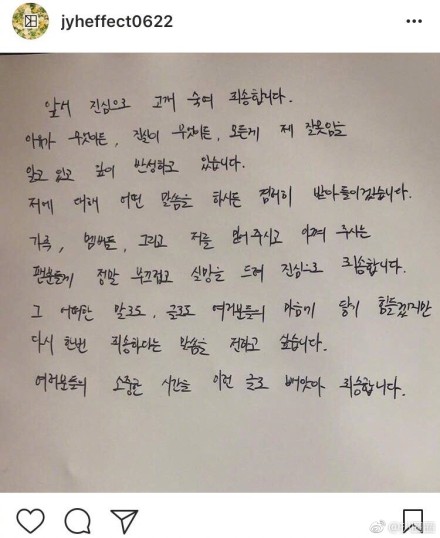 jyheffect0622
앞서 진심으로 고개 숙여 죄송합니다.
이유가 무엇이든, 진실이 무엇이든, 모든게 제 잘못임을
알고 있고 깊이 반성하고 있습니다.
저에 대해 어떤 말씀을 하시든 겸허히 받아들이겠습니다.
가족, 멤버들, 그리고 저를 믿어주시고 아껴 주시는
팬분들께 정말 부끄럽고 실망을 드려 진심으로 죄송합니다.
그 어떠한 말로도, 글로도 여러분들의 마음에 닿기 힘들겠지만
다시 한번 죄송하다는 말씀을 전하고 싶습니다.
여러분들의 소중한 시간을 이런 글로 빼앗아 죄송합니다.